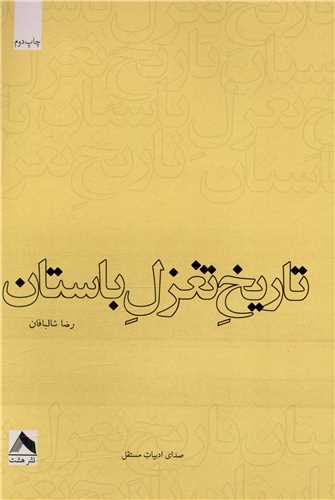 چاپ دوم
تاریخِ تغزلِ باستان
رضا شالبافان
صدای ادبیات مستقل
نشر هشت